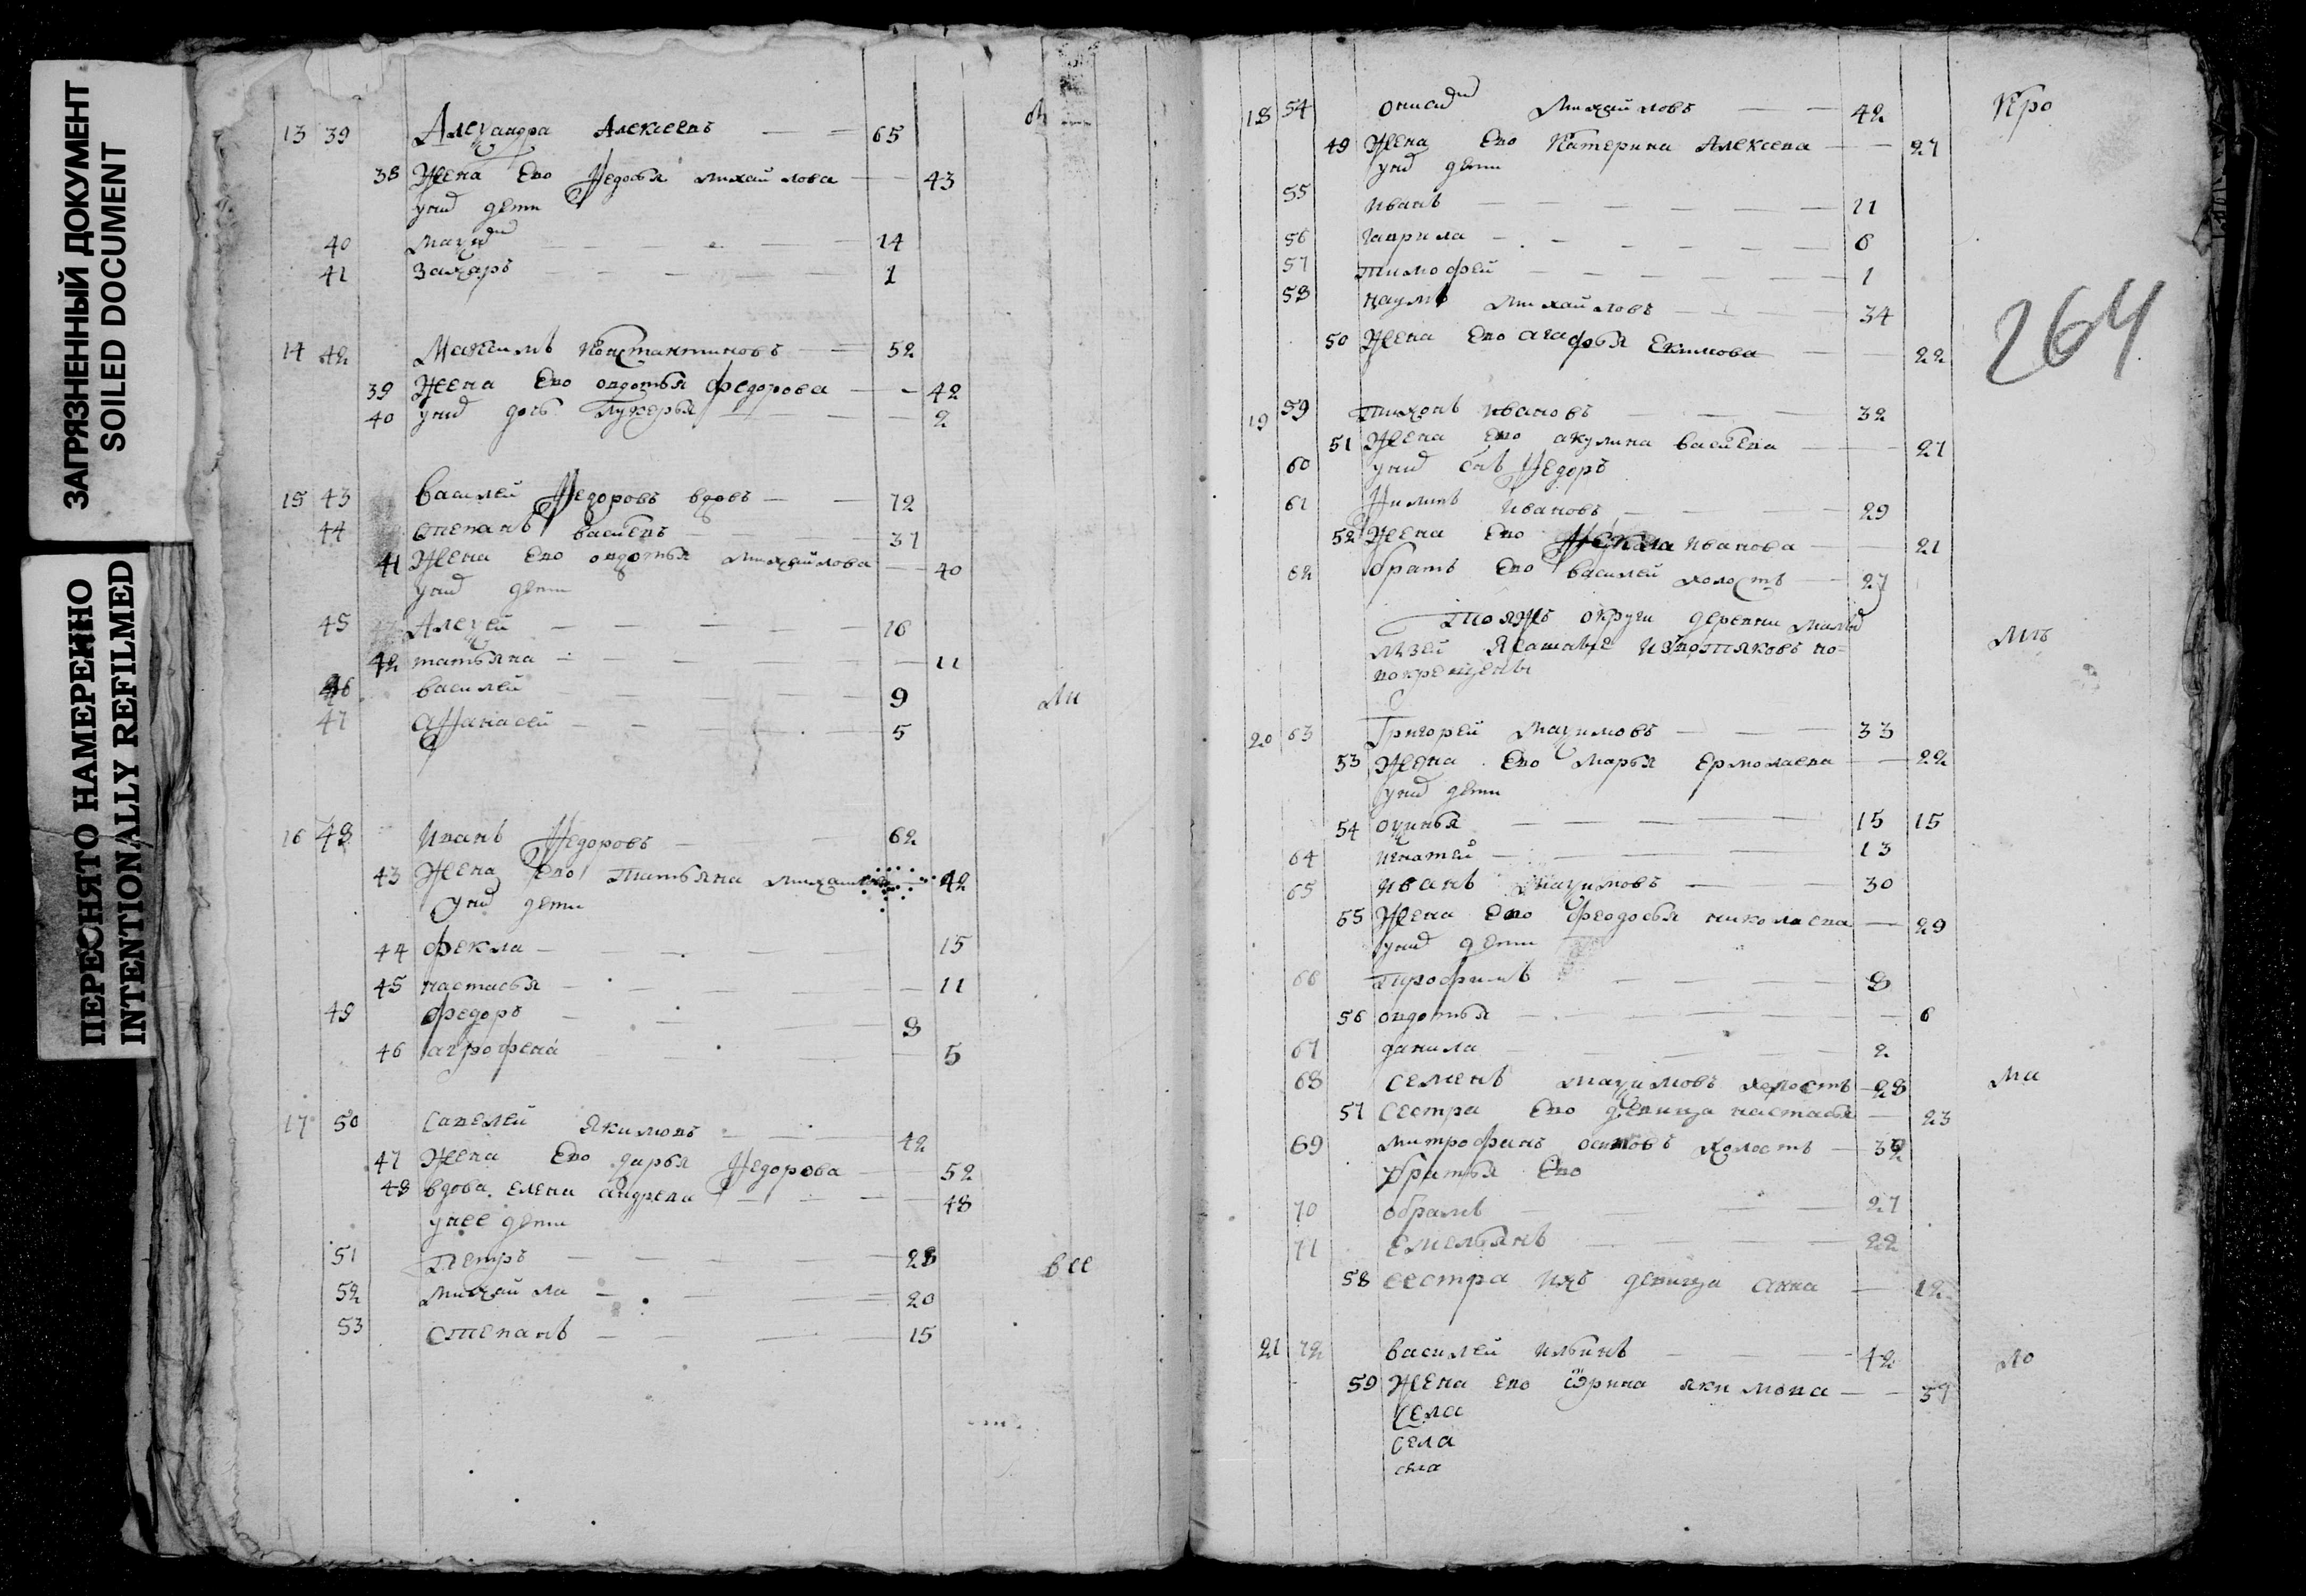 ЗАГРЯЗНЕННЫЙ ДОКУМЕНТ
SOILED DOCUMENT
ПЕРЕСНЯТО НАМЕРЕННО
INTENTIONALLY REFILMED
13 39 Алеѯандра Алексеевъ 65
38 Жена Ево Ѳедосья михайлова 43
унихъ дети
40 14
41 Захаръ 1
14 42 Максимъ Константиновъ 52
39 Жена Ево овдотья федорова 42
40 унихъ дочь Лукерья 2
15 43 Василей Ѳедоровъ вдовъ 72
44 степанъ васильевъ 37
41 Жена Ево овдотья михайлова 40
унихъ дети
45 Алеѯей 16
42 татьяна 11
46 василей 9
47 аѲанасей 5
ли
16 48 Иванъ Ѳедоровъ 62
43 Жена Ево Татьяна михайлова 42
унихъ дети
44 фекла 15
45 настасья 11
49 федоръ 8
46 агрофена 5
17 50 Савелей Якимовъ 42
47 Жена Ево дарья Ѳедорова 52
48 вдова елена андреева 48
унее дети
51 Петръ 28
все
52 михайла 20
53 степанъ 15
Про
18 54 михайловъ 42
49 Жена Ево Катерина Алексеева 27
унихъ дети
55 иванъ 11
56 гаврила 6
57 тимофей 1
58 наумъ михайловъ 34
264
50 Жена Ево агафья Екимова 22
19 59 Тихонъ ивановъ 32
51 Жена Ево акулина васильева 27
60 унихъ снъ Ѳедоръ
61 Ѳилипъ ивановъ 29
52 Жена Ево Ѳекла иванова 21
62 братъ Ево василей холостъ 27
Тояжъ округи деревни малой
ясашные извотяковъ но=
вокрещены
20 63 Григорей маѯимовъ 33
53 Жена Ево марья Ермолаева 22
унихъ дети
54 оѯинья 15 15
64 игнатей 13
65 иванъ маѯимовъ 30
55 Жена Ево феодосья николаева 29
унихъ дети
66 трофимъ 8
56 овдотья 6
67 данила 2
68 семенъ маѯимовъ холостъ 28
ма
57 сестра Ево девица настасья 23
69 митрофанъ осиповъ холостъ 32
братья Ево
70 обрамъ 27
71 емельянъ 22
58 сестра ихъ девица анна 12
21 72 василей ильинъ 42
ло
59 Жена ево ирина якимова 57
села
села